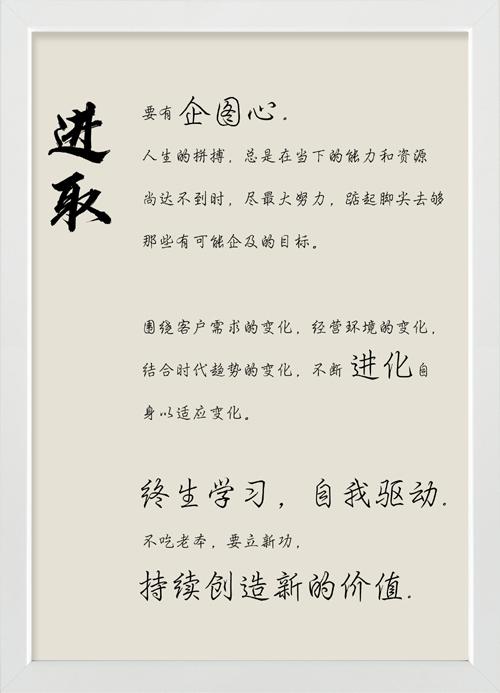 进取
要有 企图心.
人生的拼搏，总是在当下的能力和资源
尚达不到时，尽最大努力，踮起脚尖去够
那些有可能企及的目标。
围绕客户需求的变化，经营环境的变化，
结合时代趋势的变化，不断 进化 自
身以适应变化。
终生学习，自我驱动.
不吃老本，要立新功，
持续创造新的价值.